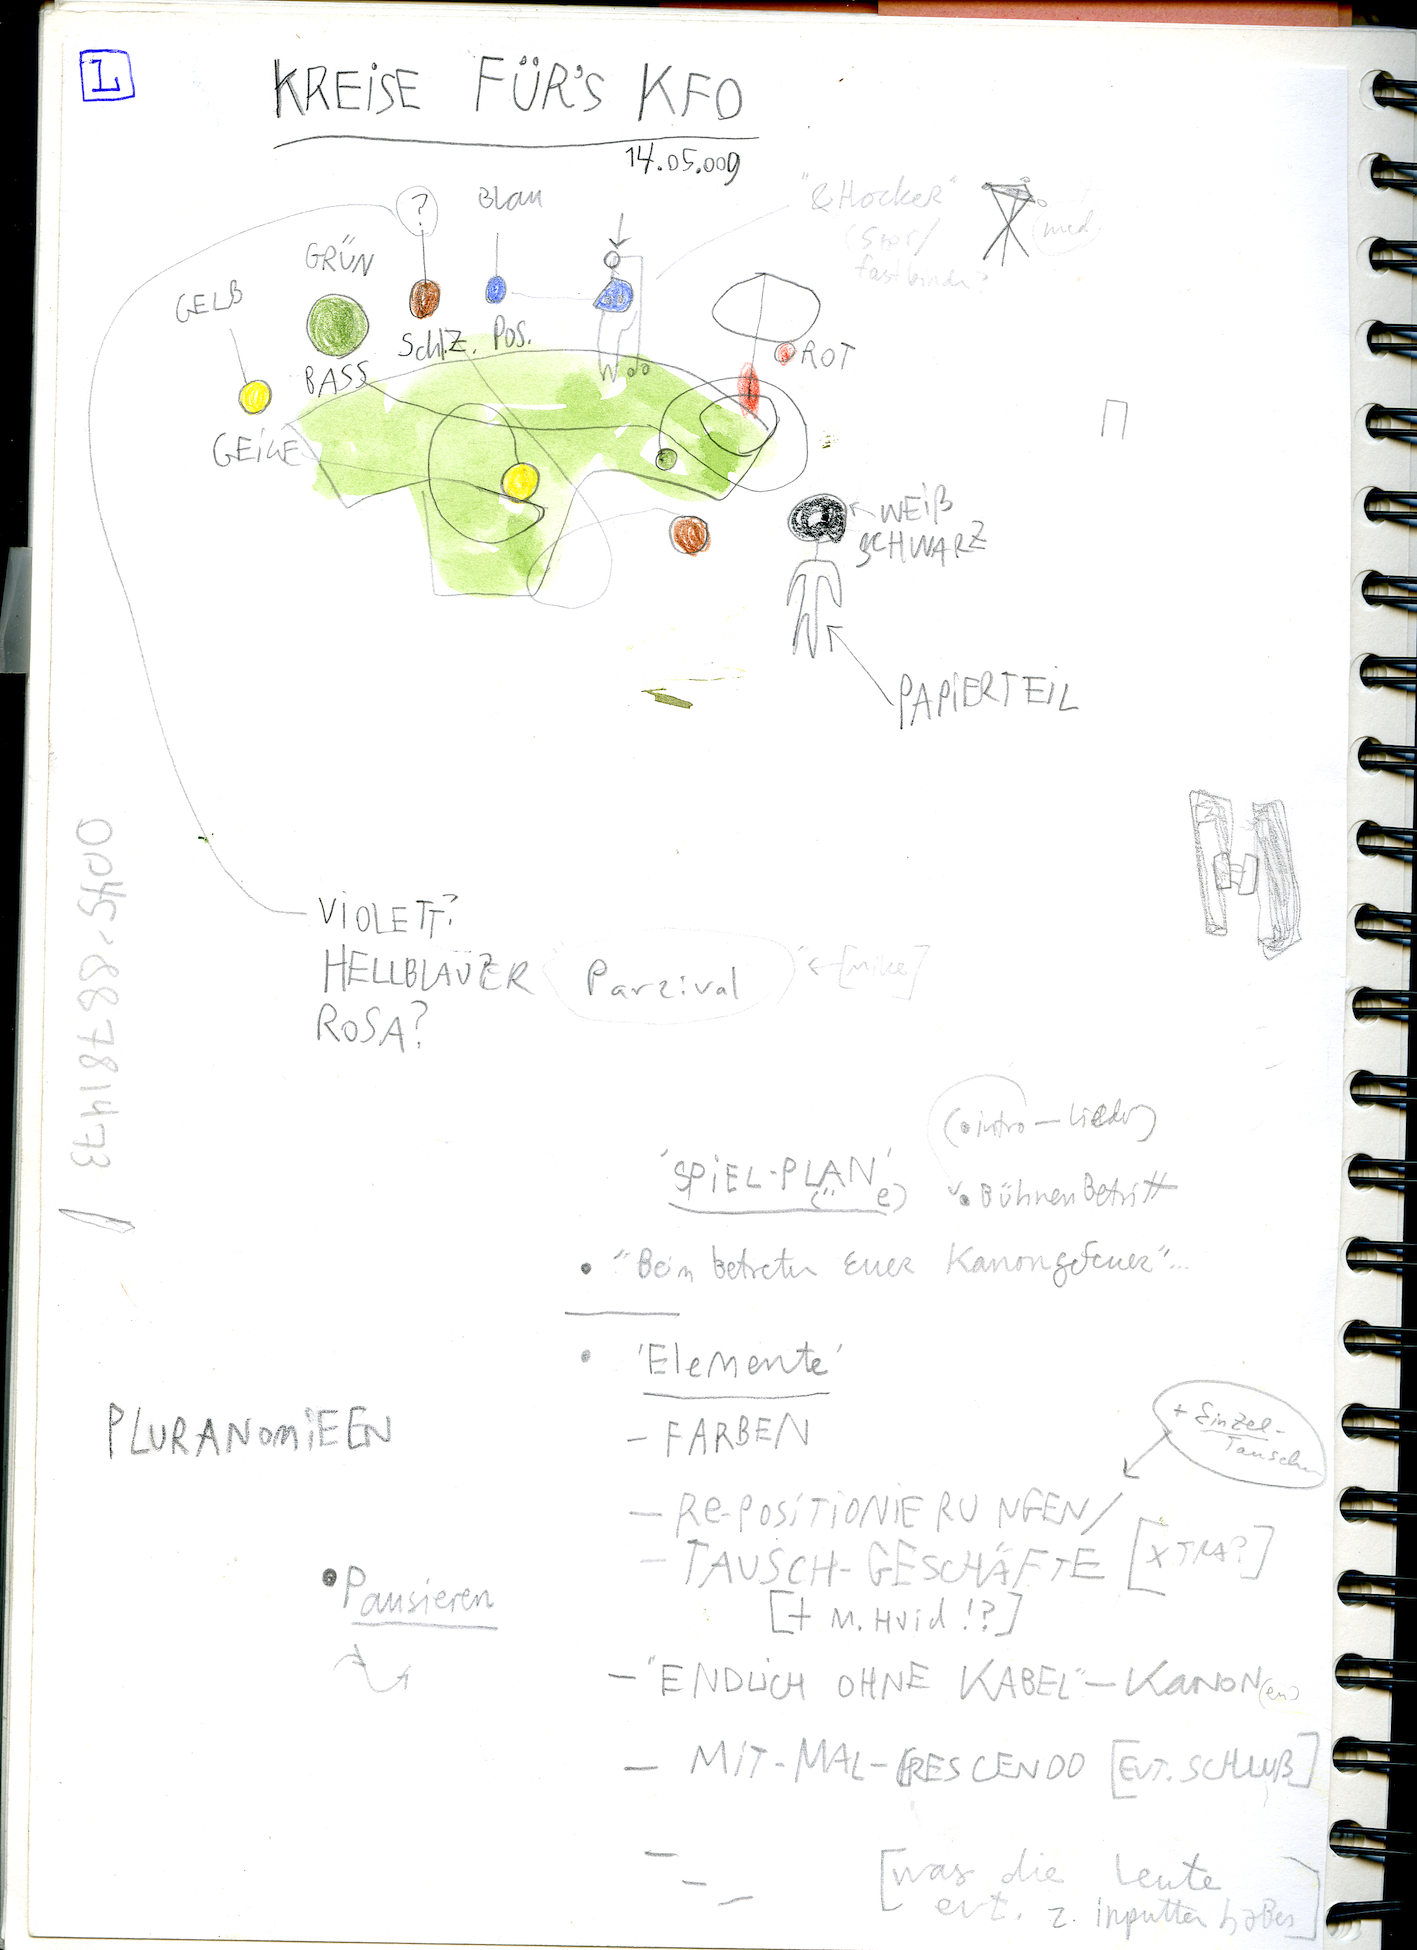 L
KREiSE FÜR'S KFO
14.05.009
?
Blau
"&Hocker"
GRÜN
GELB
Schl.Z. Pos.
BASS
ROT
GEiGE
WEiß
SCHWARZ
PAPiERTEiL
0049-88781473
ViOLETT?
HELLBLAUER
ROSA?
Parzival
[Mike]
(• intro – Lieder)
'SPiEL-PLAN'
(¨ e)
• BühnenBetritt
• "Beim betreten Euer Kanongefeuer"...
• 'Elemente'
PLURANOMiEEN
– FARBEN
+ Einzel-
Tauschen
– Re-POSiTiONiERUNGEN/
– TAUSCH-GESCHÄFTE [XTRA?]
[+ M. Hvid!?]
• Pausieren
– "ENDLiCH OHNE KABEL" – KANON(en)
– MiT-MAL-CRESCENDO [EVT. SCHLUß]
[was die Leute
evt. z. inputten haben]